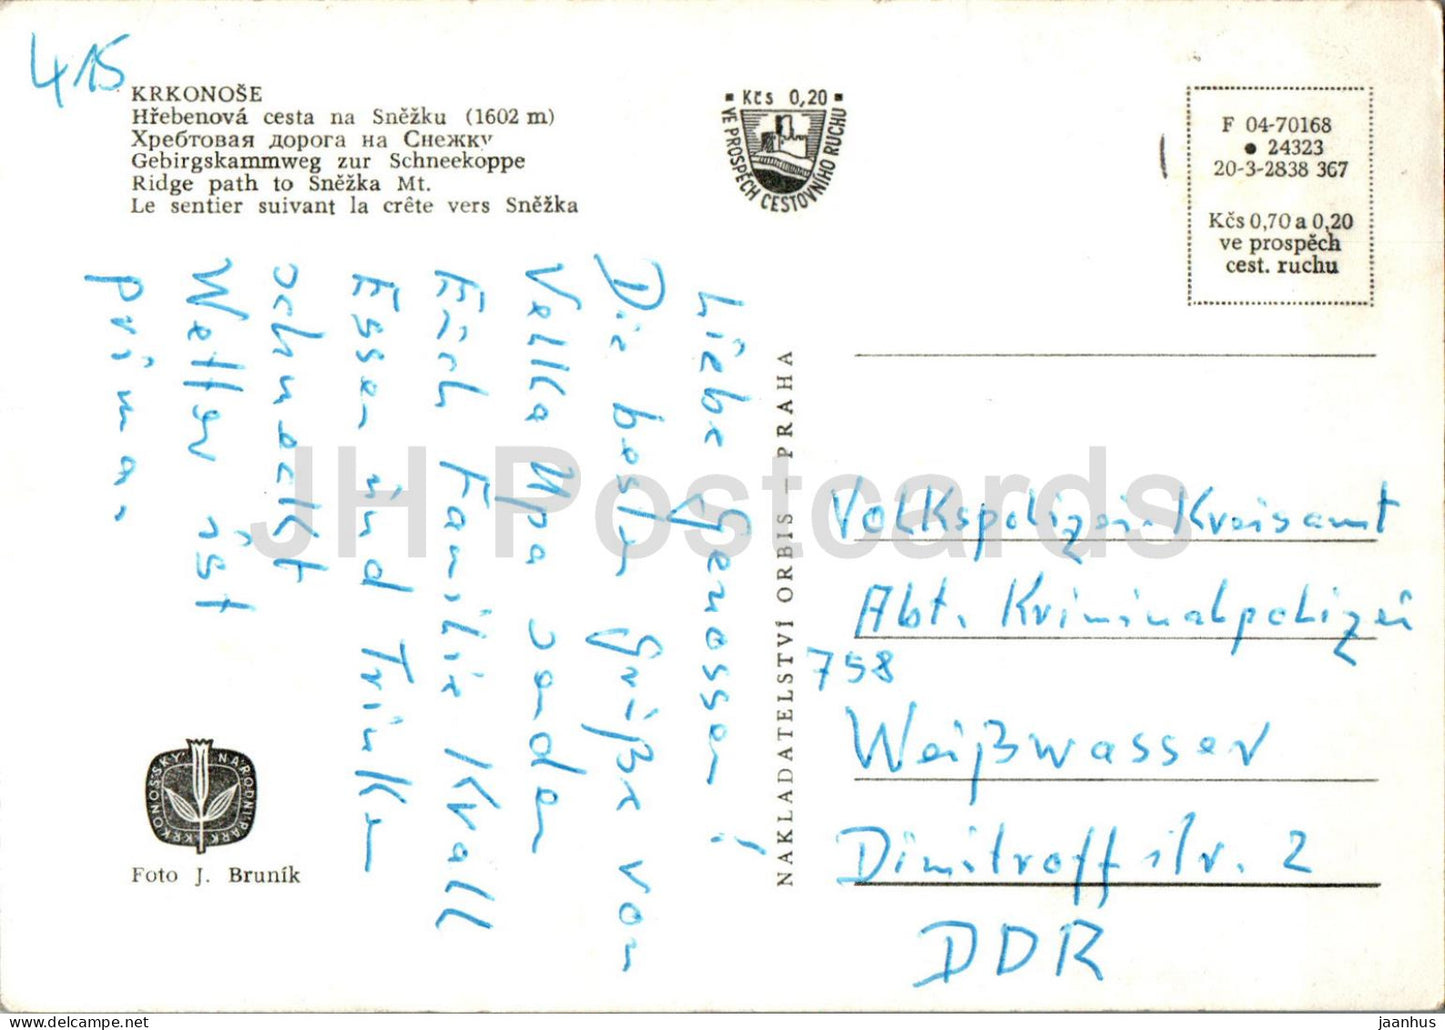 415
KRKONOŠE
Hřebenová cesta na Sněžku (1602 m)
Хребтовая дорога на Снежку
Gebirgskammweg zur Schneekoppe
Ridge path to Sněžka Mt.
Le sentier suivant la crête vers Sněžka
Kčs 0,20
VE PROSPĚCH CESTOVNÍHO RUCHU
F 04-70168
● 24323
20-3-2838 367
Kčs 0,70 a 0,20
ve prospěch
cest. ruchu
Liebe Genossen!
Die besten Grüße von
Velka Upa senden
Euch Familie Krall
Essen und Trinken
schmeckt
Wetter ist
prima.
NAKLADATELSTVÍ ORBIS — PRAHA
Volkspolizei-Kreisamt
Abt. Kriminalpolizei
758
Weißwasser
Dimitroffstr. 2
DDR
KRKONOŠSKÝ NÁRODNÍ PARK
Foto J. Bruník
JH Postcards
jaanhus delcampe.net